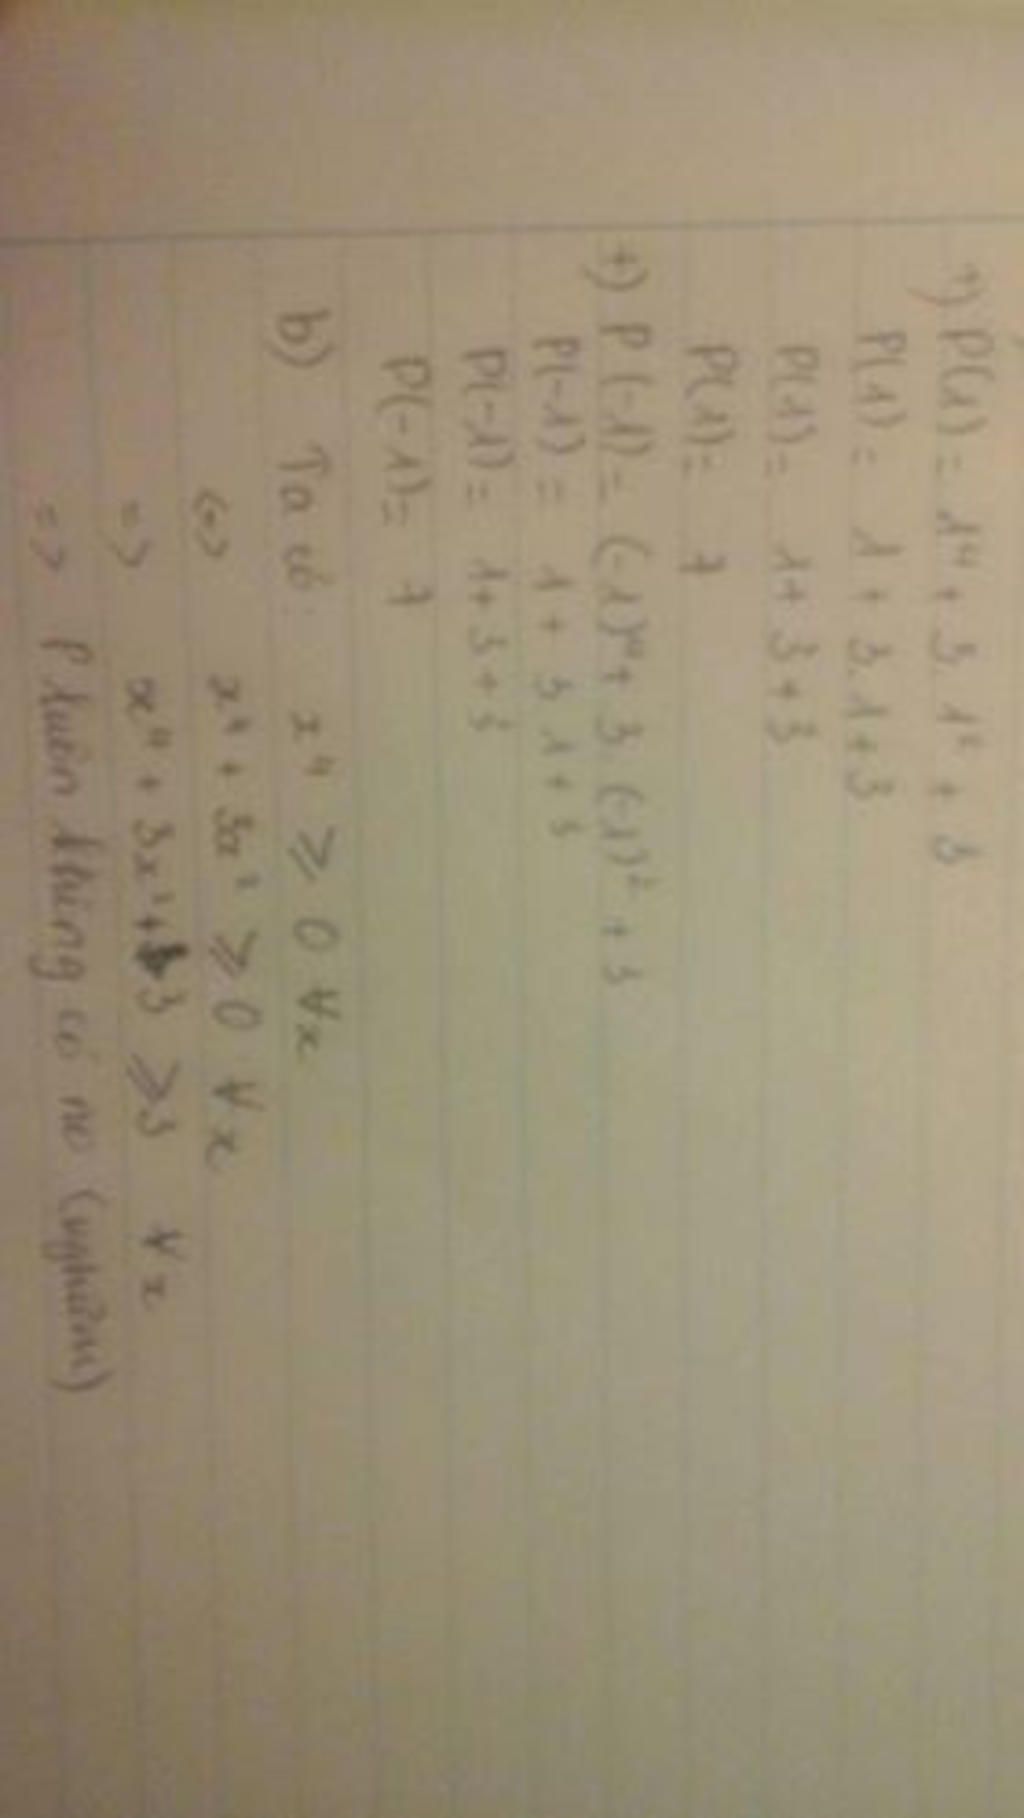 +) P(1) = 1⁴ + 3.1² + 3
P(1) = 1 + 3.1 + 3
P(1) = 1 + 3 + 3
P(1) = 7
+) P(-1) = (-1)⁴ + 3.(-1)² + 3
P(-1) = 1 + 3.1 + 3
P(-1) = 1 + 3 + 3
P(-1) = 7
b) Ta có x⁴ ≥ 0 ∀x
<=> x⁴ + 3x² ≥ 0 ∀x
=> x⁴ + 3x² + 3 ≥ 3 ∀x
=> P luôn không có no (nghiệm)